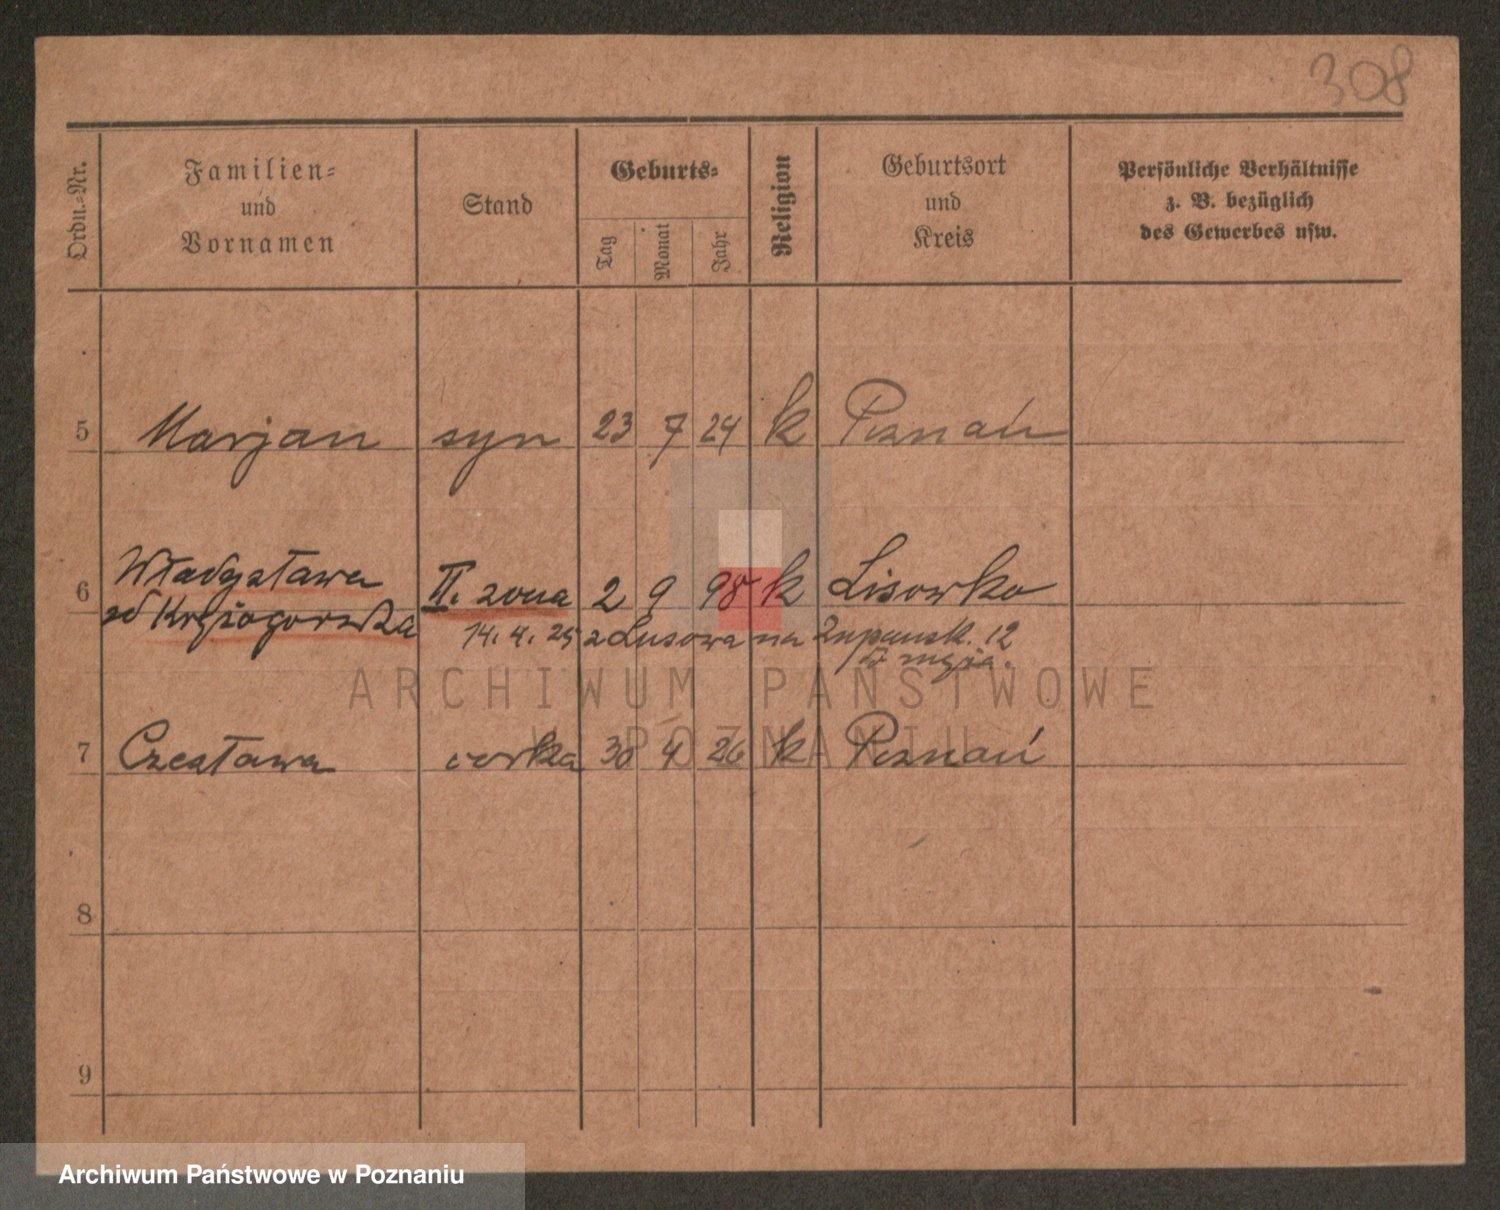 308
Ordn.-Nr. Familien- und Vornamen Stand Geburts- Tag Monat Jahr Religion Geburtsort und Kreis Persönliche Verhältnisse z. B. bezüglich des Gewerbes usw.
5 Marjan syn 23 7 24 k Poznań
6 Władysława II. żona 2 9 98 k Lisowko
zd
14. 4. 25 z Lusowa na Zupansk. 12
7 Czesława corka 30 4 26 k Poznań
8
9
ARCHIWUM PAŃSTWOWE
W POZNANIU
Archiwum Państwowe w Poznaniu